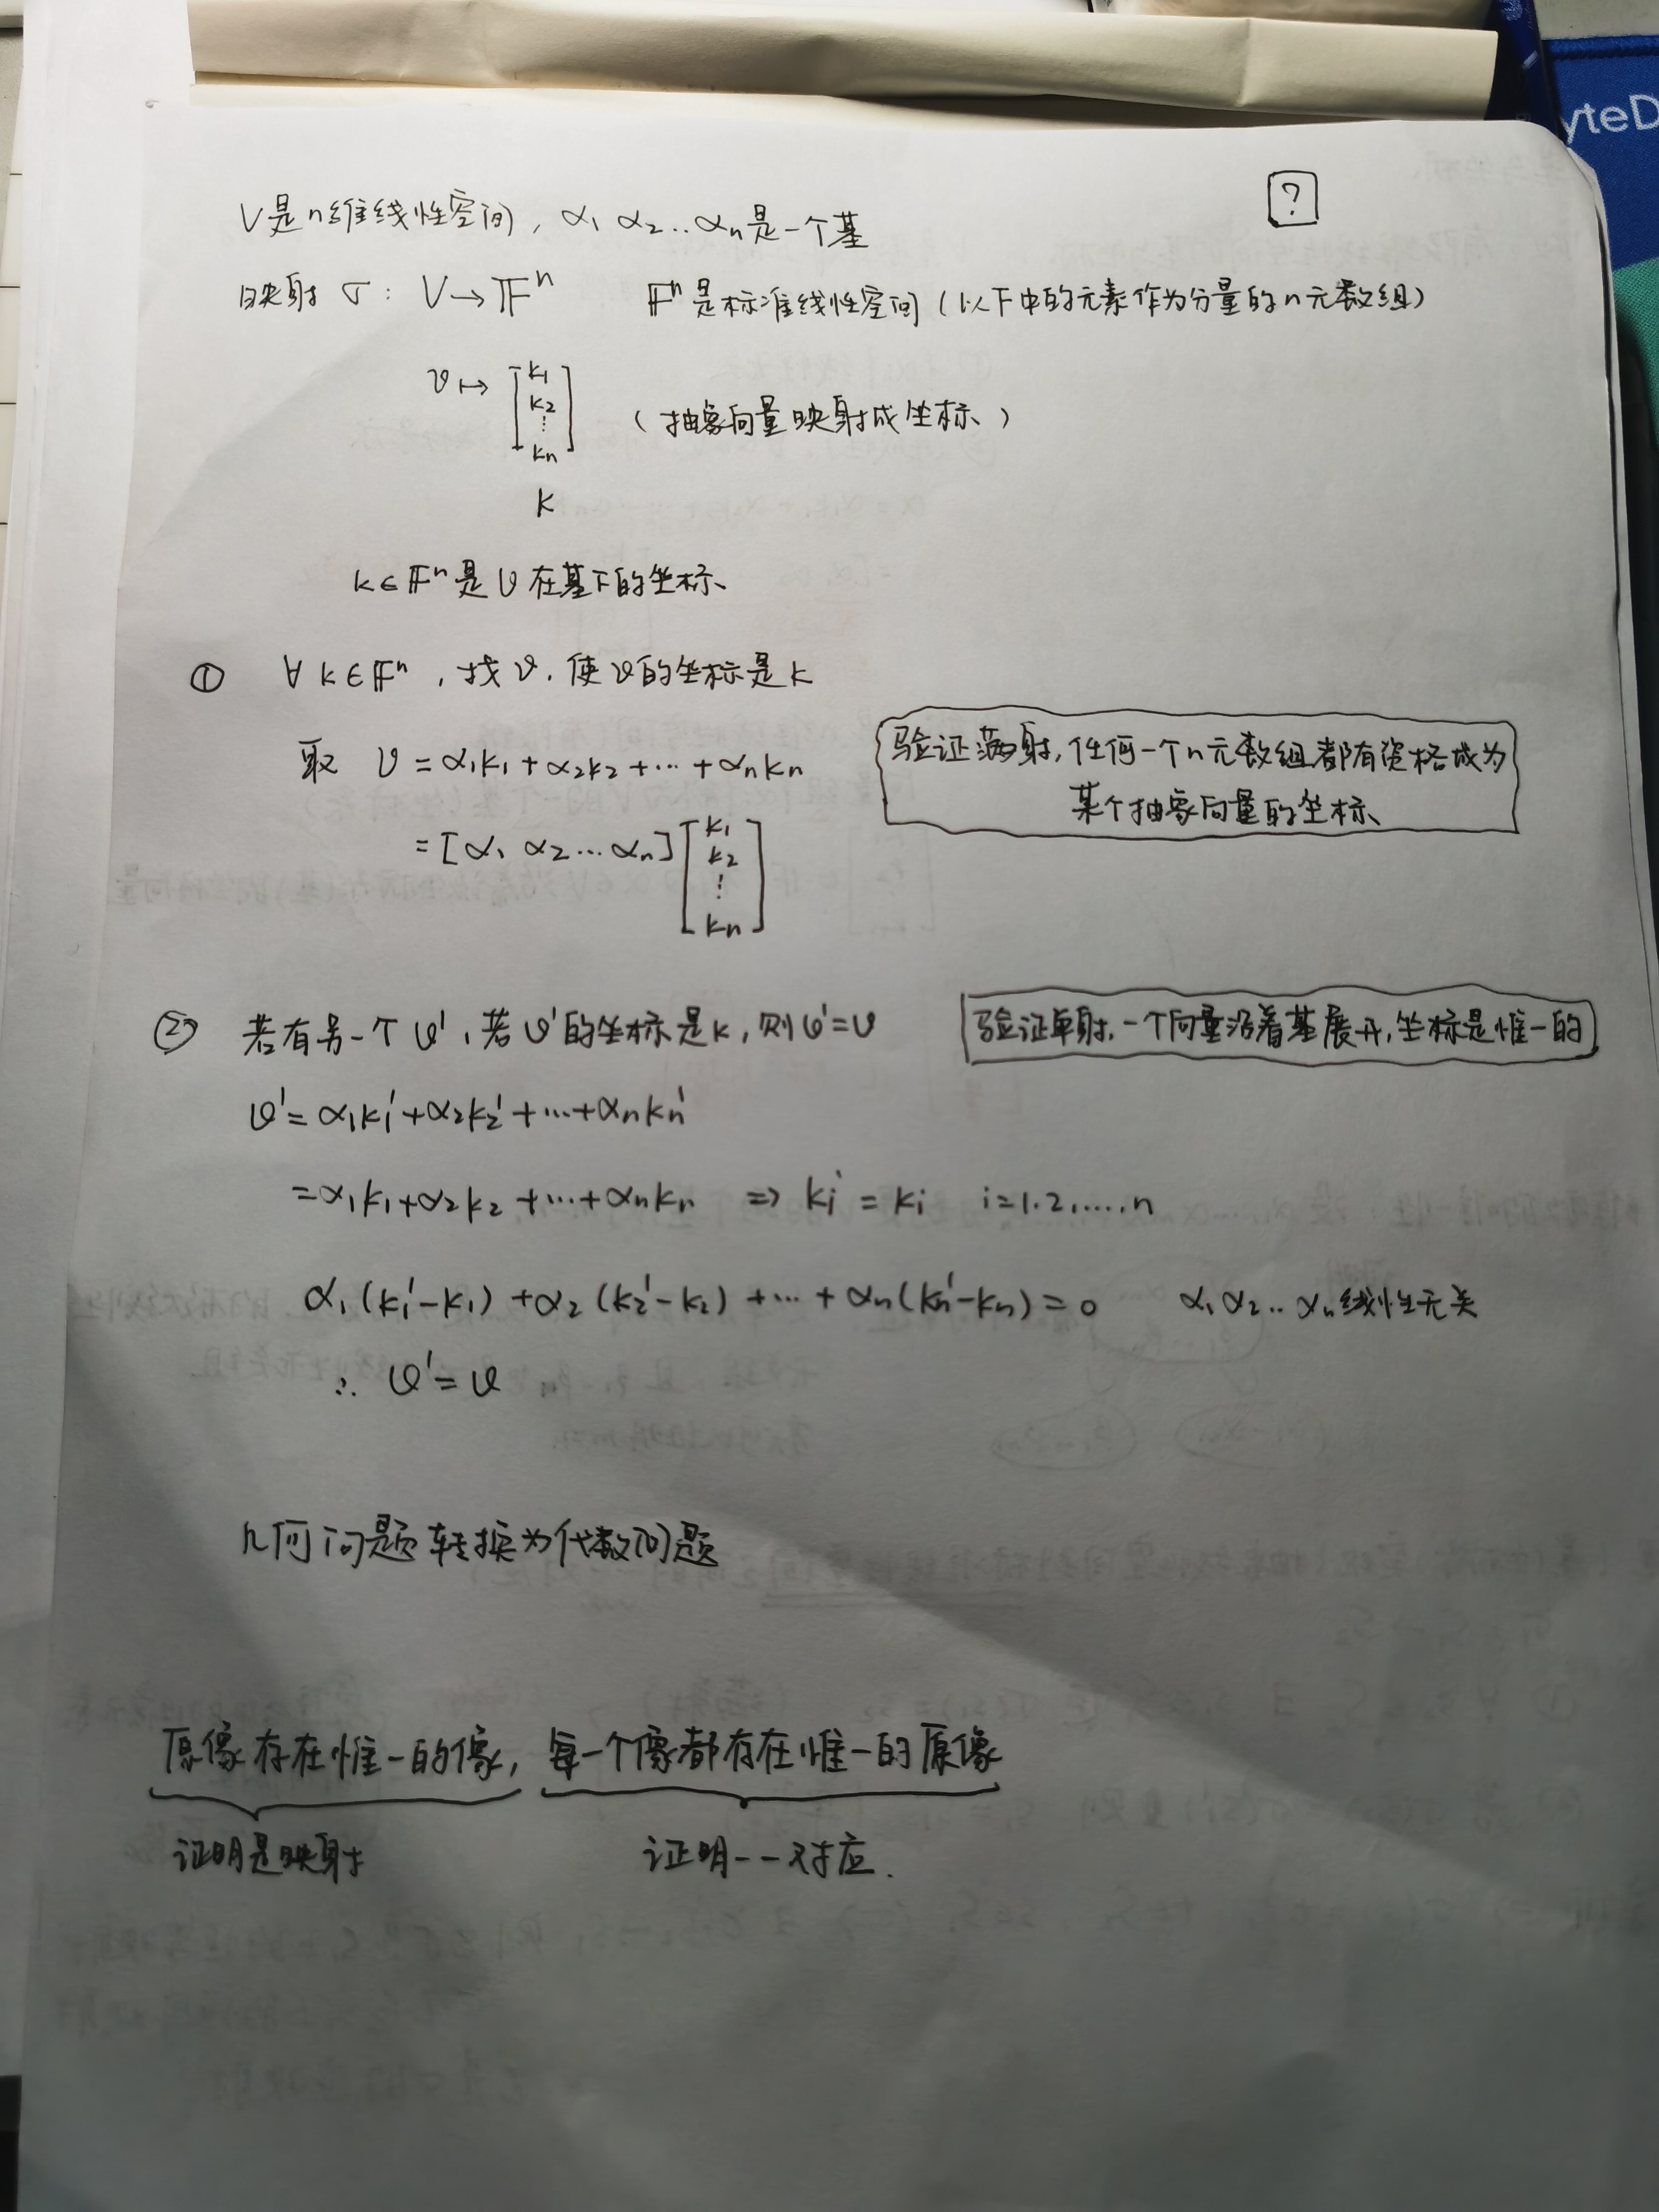 yteD
?
V是n维线性空间, α₁ α₂‥αₙ是一个基
映射 σ: V→𝔽ⁿ 𝔽ⁿ是标准线性空间(以下中的元素作为分量的n元数组)
v ↦ [k₁ k₂ ⋮ kₙ] (抽象向量映射成坐标)
k
k∈𝔽ⁿ是v在基下的坐标
① ∀ k∈𝔽ⁿ, 找v, 使v的坐标是k
取 v = α₁k₁+α₂k₂+⋯+αₙkₙ
验证满射, 任何一个n元数组都有资格成为
某个抽象向量的坐标
= [α₁ α₂⋯αₙ] [k₁ k₂ ⋮ kₙ]
② 若有另一个v′, 若v′的坐标是k, 则v′=v
验证单射, 一个向量沿着基展开, 坐标是惟一的
v′=α₁k₁′+α₂k₂′+⋯+αₙkₙ′
=α₁k₁+α₂k₂+⋯+αₙkₙ ⇒ kᵢ′=kᵢ i=1.2,…,n
α₁(k₁′-k₁)+α₂(k₂′-k₂)+⋯+αₙ(kₙ′-kₙ)=0 α₁α₂‥αₙ线性无关
∴ v′=v
几何问题转换为代数问题
原像存在惟一的像, 每一个像都存在惟一的原像
证明是映射 证明一一对应.